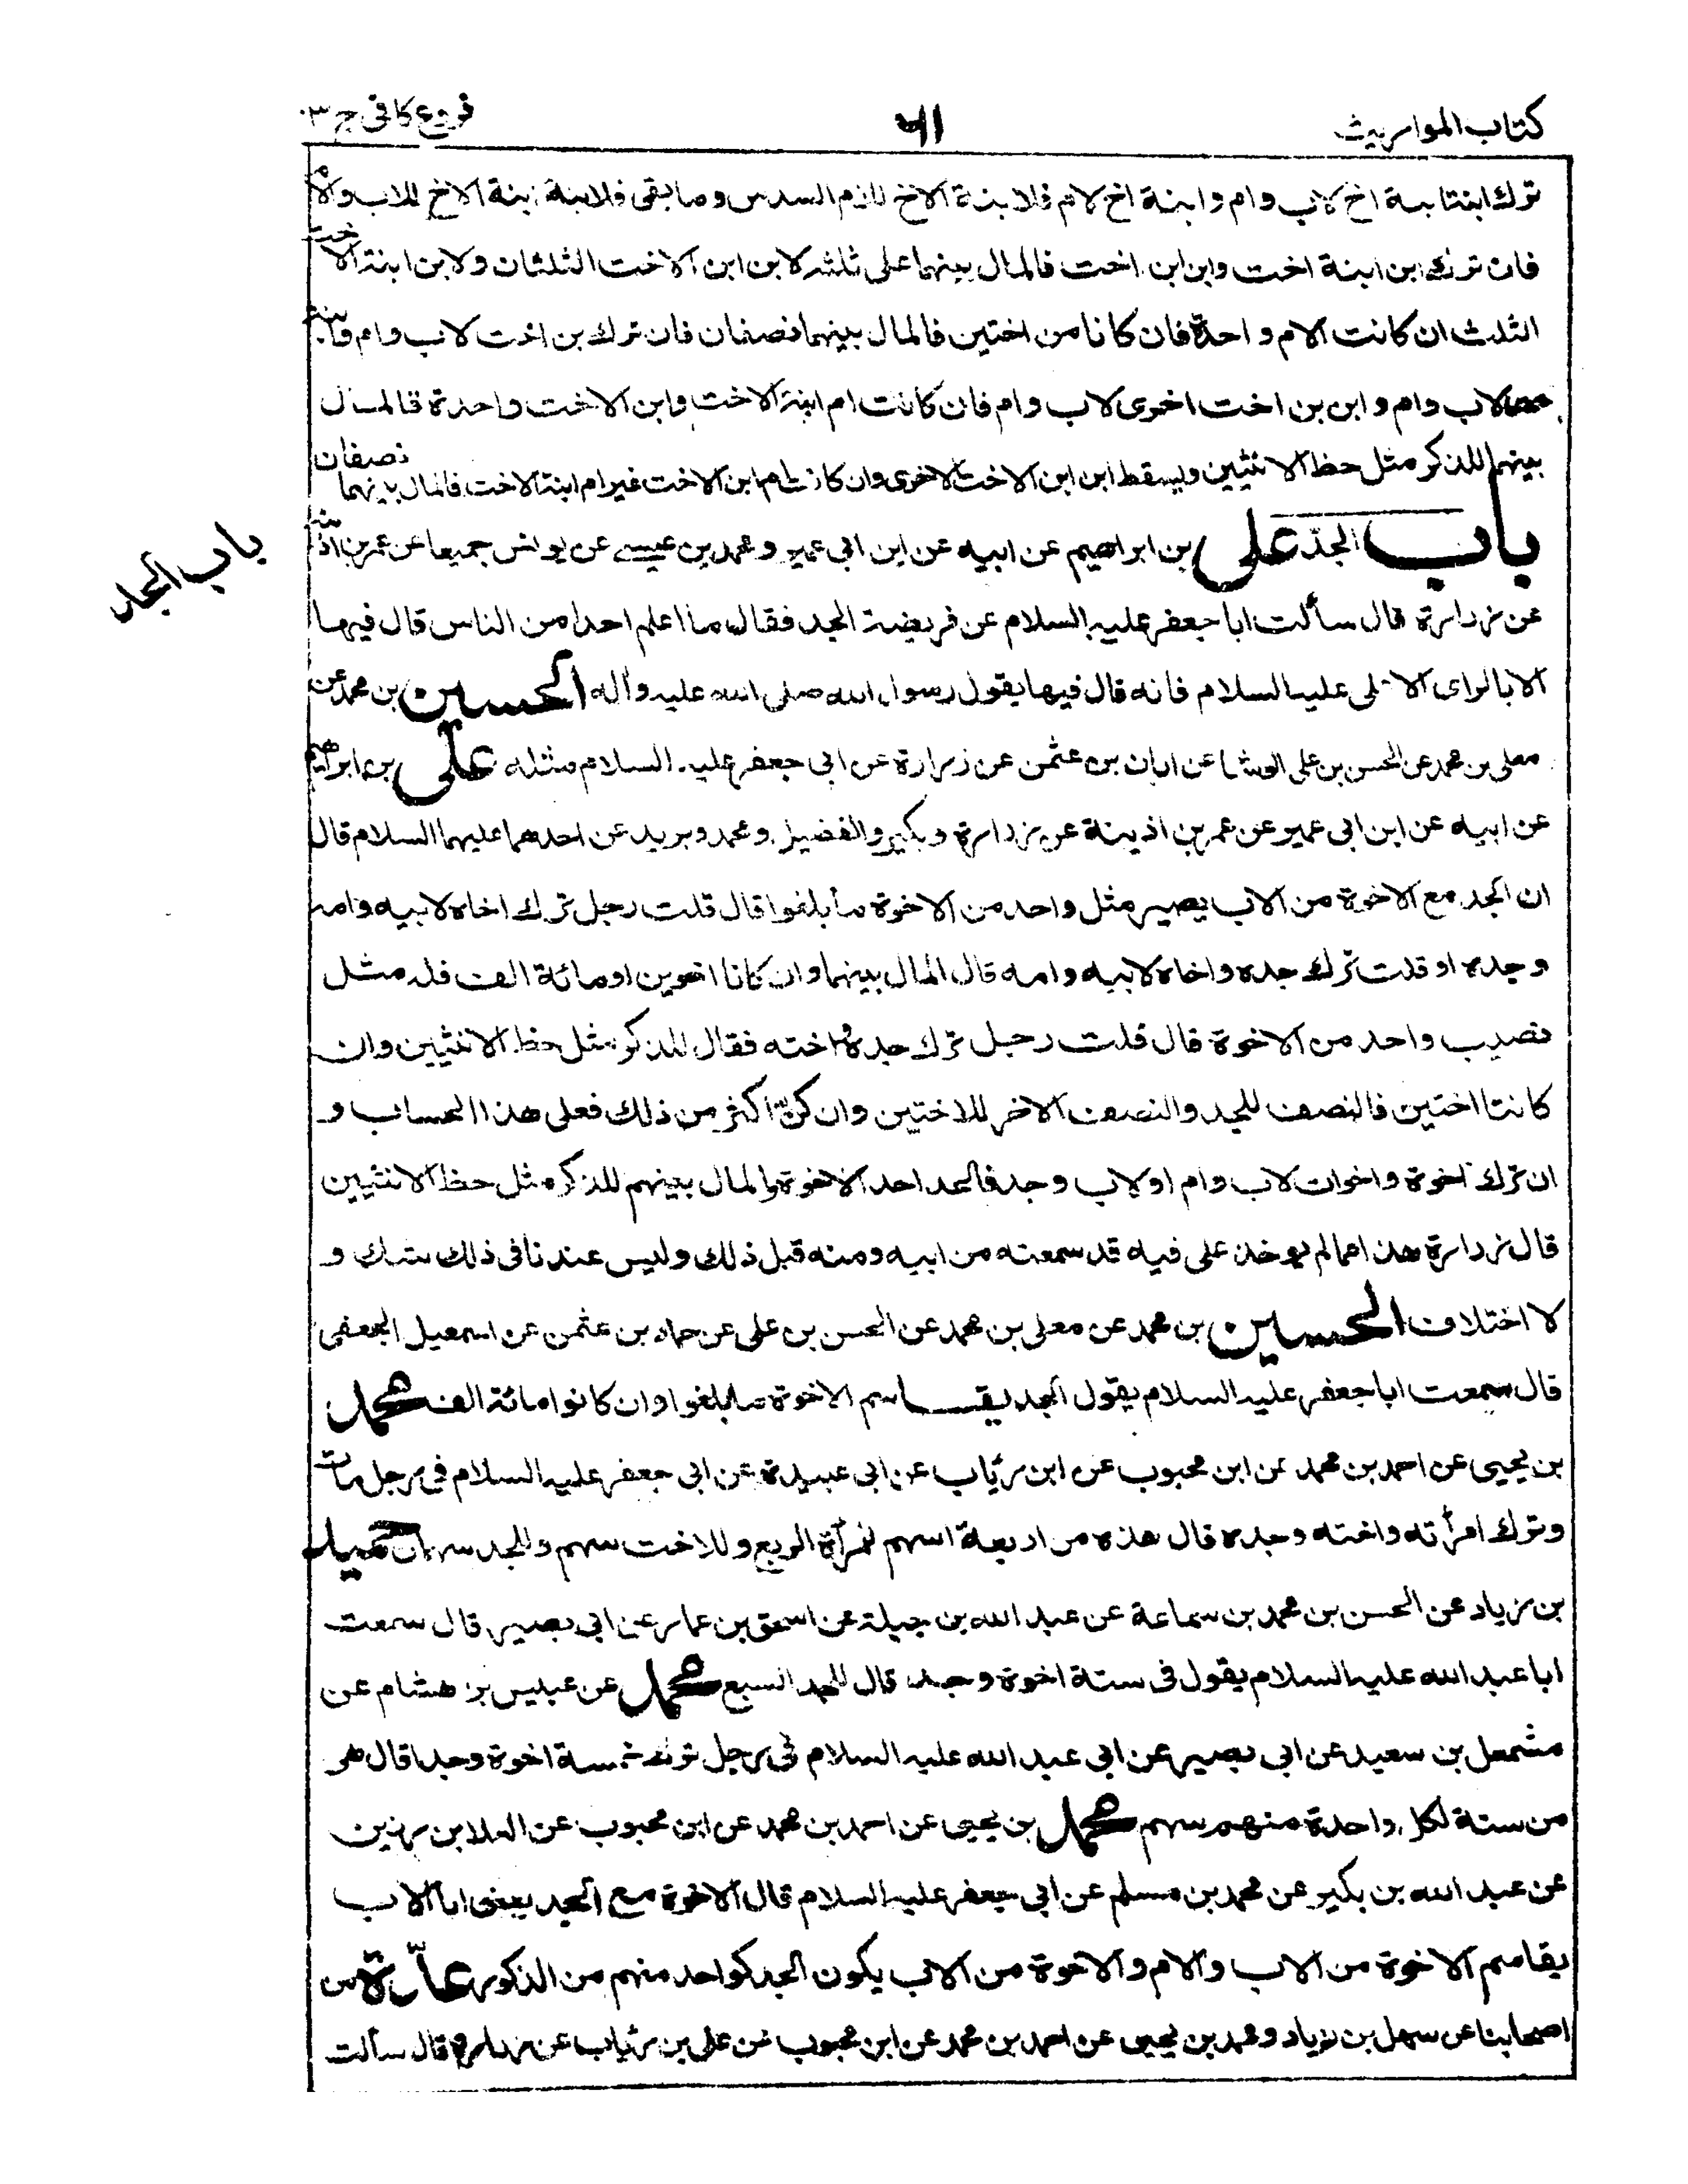 كتاب المواريث ٦١ فروع كافى ج ٣
ترك ابنتا بنة اخ لاب وام وابنة اخ لام فلابنة الاخ للام السدس وما بقى فلابنة ابنة الاخ للاب والام
فان ترك ابن ابنة اخت وابن ابن اخت فالمال بينهما على ثلثة لابن ابن الاخت الثلثان ولابن ابنة الاخت
الثلث ان كانت الام واحدة فان كانا من اختين فالمال بينهما نصفان فان ترك بن اخت لاب وام وابنة
لاب وام وابن بن اخت اخرى لاب وام فان كانت ام ابنة الاخت وابن الاخت واحدة فالمال
بينهما للذكر مثل حظ الانثيين ويسقط ابن ابن الاخت الاخرى وان كانت ام ابن الاخت غير ام ابنة الاخت فالمال بينهما نصفان
باب الجد على بن ابراهيم عن ابيه عن ابن ابى عمير ومحمد بن عيسى عن يونس جميعا عن عمر بن اذينة
باب الجد
عن زرارة قال سألت ابا جعفر عليه السلام عن فريضة الجد فقال ما اعلم احدا من الناس قال فيها
الا بالراى الا على عليه السلام فانه قال فيها يقول رسول الله صلى الله عليه وآله الحسين بن محمد عن
معلى بن محمد عن الحسن بن على الوشا عن ابان بن عثمن عن زرارة عن ابى جعفر عليه السلام مثله على بن ابراهيم
عن ابيه عن ابن ابى عمير عن عمر بن اذينة عن زرارة وبكير والفضيل ومحمد وبريد عن احدهما عليهما السلام قال
ان الجد مع الاخوة من الاب يصير مثل واحد من الاخوة ما بلغوا قال قلت رجل ترك اخاه لابيه وامه
وجده او قلت ترك جده واخاه لابيه وامه قال المال بينهما وان كانا اخوين او مائة الف فله مثل
نصيب واحد من الاخوة قال قلت رجل ترك جده واخته فقال للذكر مثل حظ الانثيين وان
كانتا اختين فالنصف للجد والنصف الاخر للاختين وان كنّ اكثر من ذلك فعلى هذا الحساب و
ان ترك اخوة واخوات لاب وام او لاب وجد فالجد احد الاخوة والمال بينهم للذكر مثل حظ الانثيين
قال زرارة هذا مما لم يوخذ على فيه قد سمعته من ابيه ومنه قبل ذلك وليس عندنا فى ذلك شك و
لا اختلاف الحسين بن محمد عن معلى بن محمد عن الحسن بن على عن حماد بن عثمن عن اسمعيل الجعفى
قال سمعت ابا جعفر عليه السلام يقول الجد يقاسم الاخوة ما بلغوا وان كانوا مائة الف محمد
بن يحيى عن احمد بن محمد عن ابن محبوب عن ابن رئاب عن ابى عبيدة عن ابى جعفر عليه السلام فى رجل مات
وترك امرأته واخته وجده قال هذه من اربعة اسهم للمرأة الربع وللاخت سهم وللجد سهمان حميد
بن زياد عن الحسن بن محمد بن سماعة عن عبد الله بن جبلة عن اسحق بن عمار عن ابى بصير قال سمعت
ابا عبد الله عليه السلام يقول فى ستة اخوة وجد قال للجد السبع محمد عن عبيس بن هشام عن
مشمعل بن سعيد عن ابى بصير عن ابى عبد الله عليه السلام فى رجل ترك خمسة اخوة وجدا قال هى
من ستة لكل واحدة منهم سهم محمد بن يحيى عن احمد بن محمد عن ابن محبوب عن العلا بن رزين
عن عبد الله بن بكير عن محمد بن مسلم عن ابى جعفر عليه السلام قال الاخوة مع الجد يعنى ابا الاب
يقاسم الاخوة من الاب والام والاخوة من الاب يكون الجد كواحد منهم من الذكور عدّة من
اصحابنا عن سهل بن زياد ومحمد بن يحيى عن احمد بن محمد عن ابن محبوب عن على بن رئاب عن زرارة قال سألت